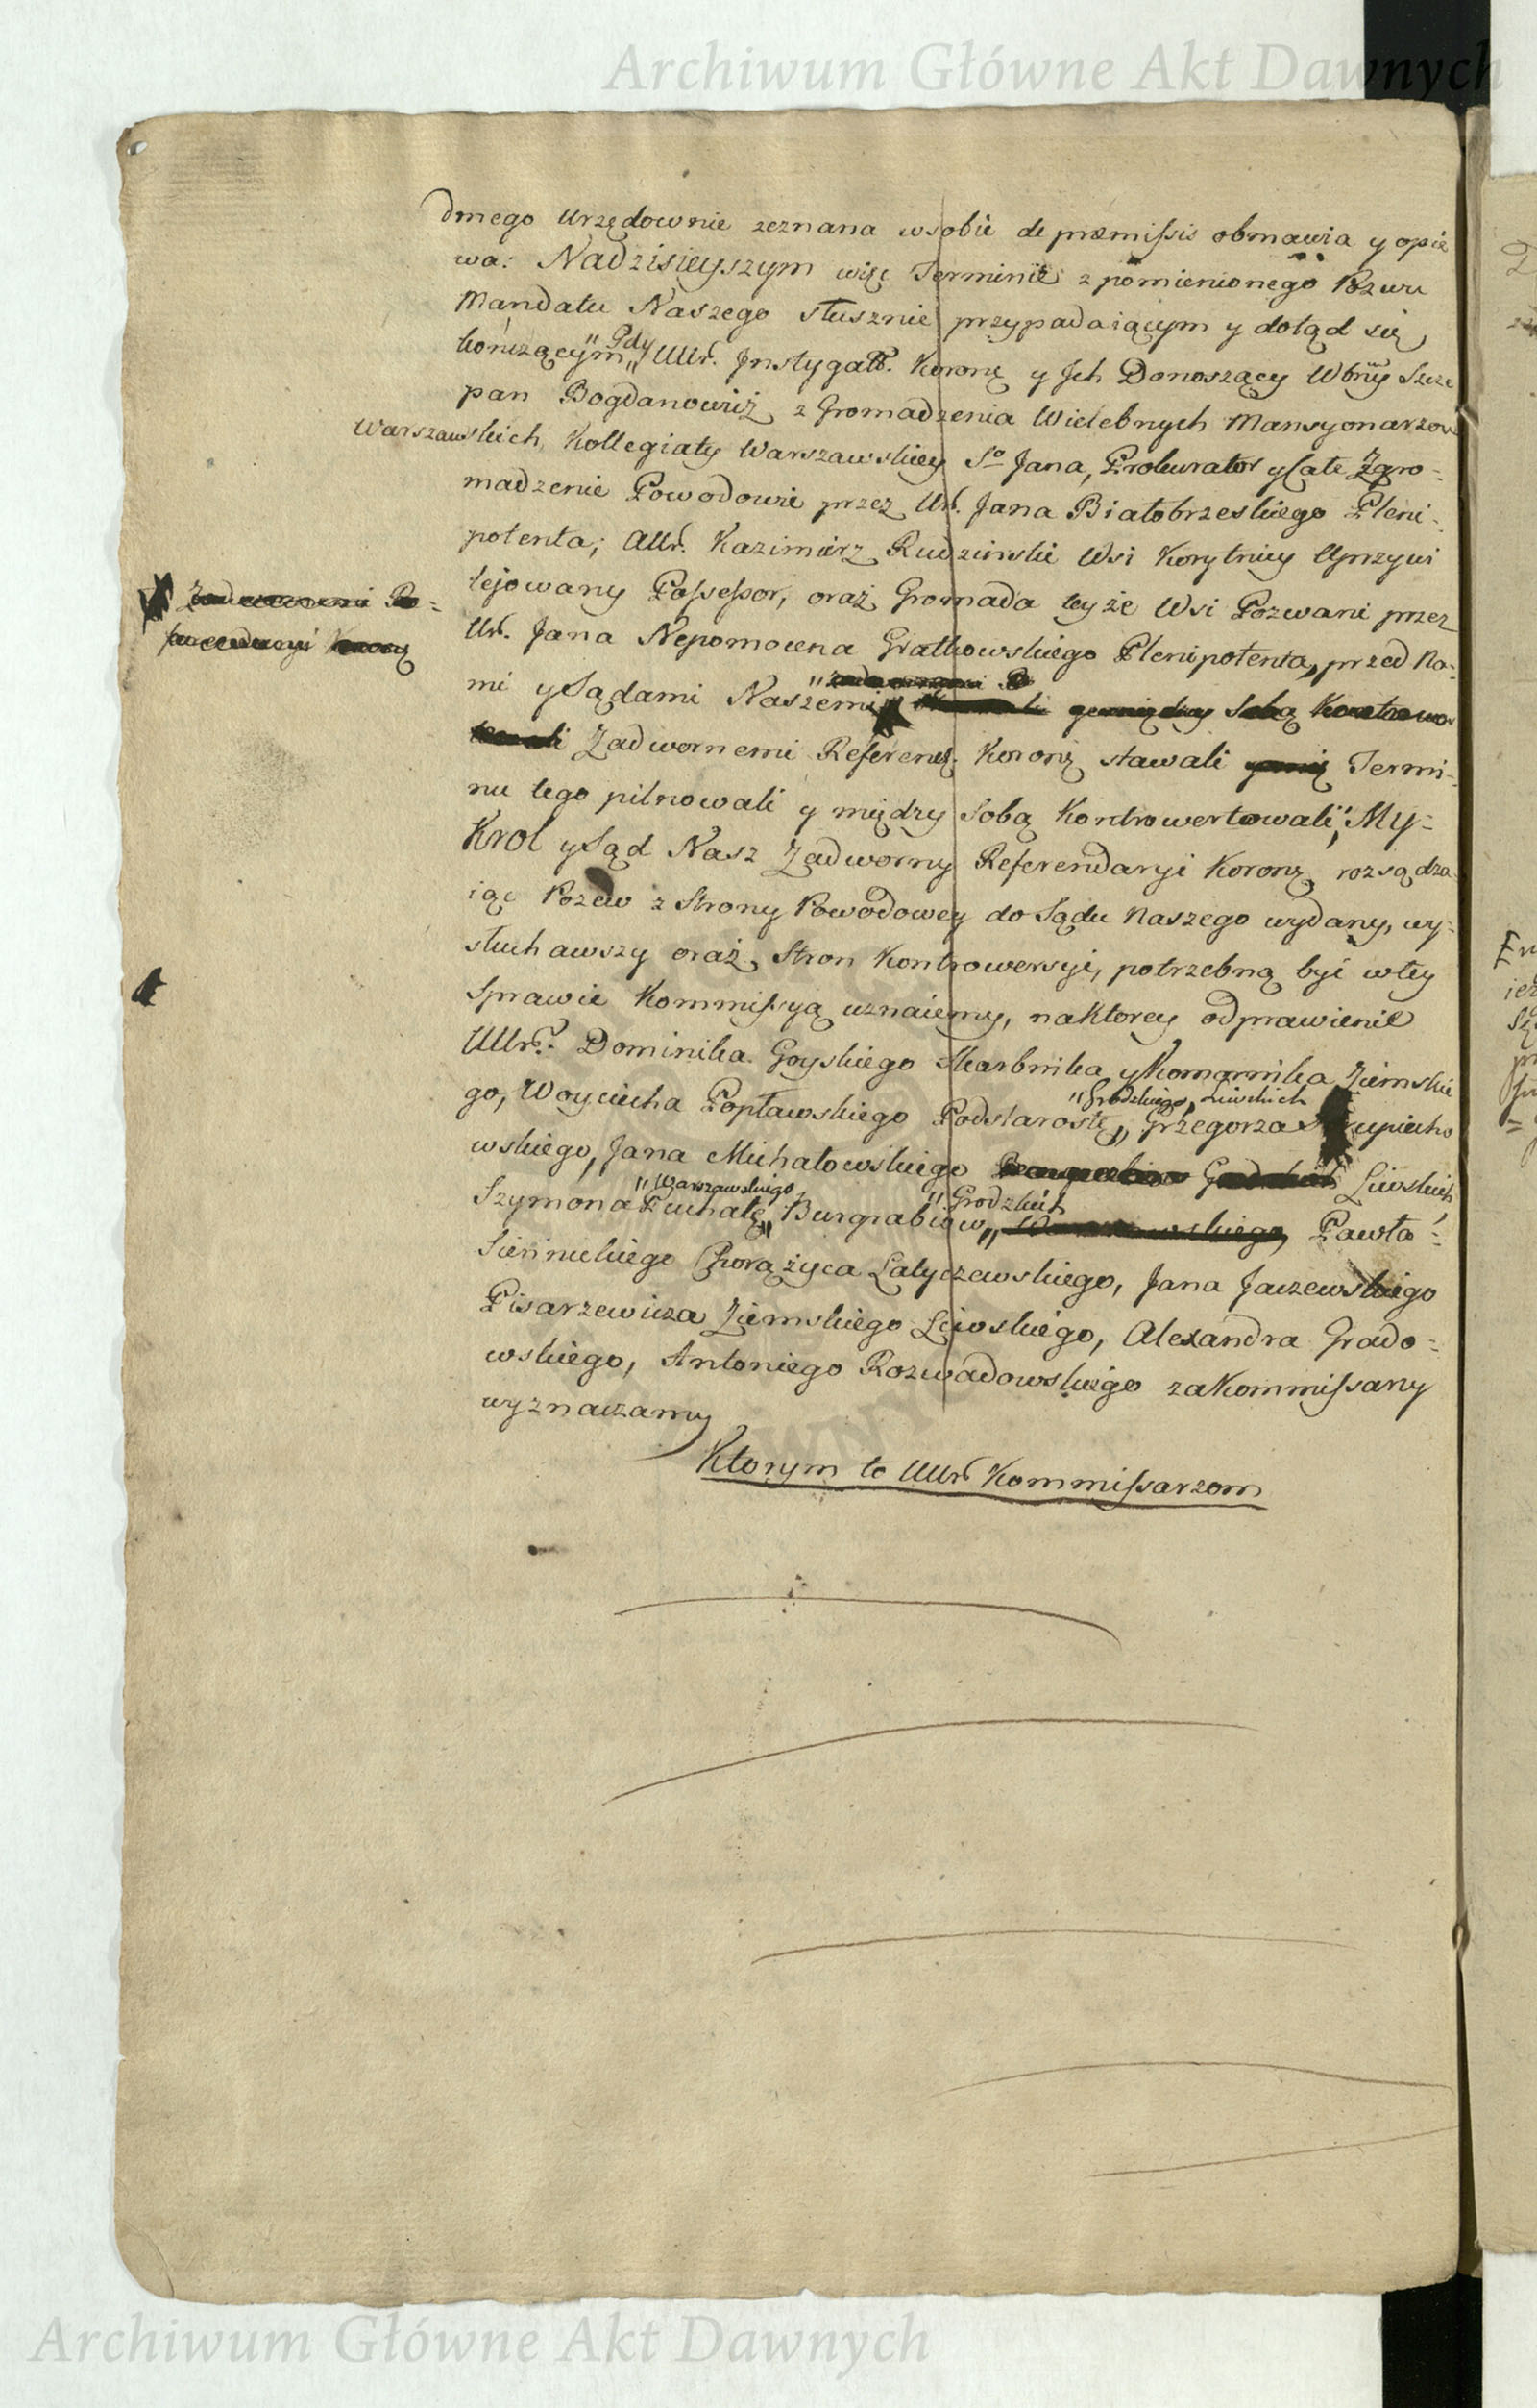 Archiwum Główne Akt Dawnych
dmego Urzędownie zeznana w sobie de præmissis obmawia y opie
wa: Na dzisieyszym więc Terminie z pomienionego Pozwu
Mandatu Naszego słusznie przypadaiącym y dotąd się
kończącym „Gdy„ Ullr. Jnstygatt. Koronę y Jch Donoszący Wbny Szcze
pan Bogdanowicz z Gromadzenia Wielebnych Mansyonarzow
Warszawskich Kollegiaty Warszawskiey So Jana, Prokurator y Całe Zgro=
madzenie Powodowie przez Ur. Jana Białobrzeskiego Pleni=
potenta; a Ur. Kazimierz Rudzinski Wsi Korytnicy Uprzywi
lejowany Possessor, oraz Gromada teyże Wsi Pozwani przez
Ur. Jana Nepomocena Gratkowskiego Plenipotenta, przed Na=
mi y Sądami Naszemi
Zadwornemi Referen. Koronę stawali Termi=
nu tego pilnowali y między sobą Kontrowertowali; My=
Krol y Sąd Nasz Zadworny Referendaryi Koronę rozsądza
iąc Pozew z Strony Powodowey do Sądu Naszego wydany, wy=
słuchawszy oraz Stron Kontrowersyi, potrzebną być w tey
Sprawie Kommissyą uznaiemy, na ktorey odprawienie
Ullr. Dominika Goyskiego Skarbnika y Komornika Ziemskie
go, Woyciecha Popławskiego Podstarostę „Grodzkiego, Liwskich„ Grzegorza
wskiego, Jana Michałowskiego Liwskich,
Szymona Puchałę „Warszawskiego„ Burgrabiow „Grodzkich„ Pawła=
Sieninckiego Chorążyca Latyczewskiego, Jana Jaczewskiego
Pisarzewicza Ziemskiego Liwskiego, Alexandra Grado=
wskiego, Antoniego Rozwadowskiego za Kommissarzy
wyznaczamy
Ktorym to Ullr. Kommissarzom
Archiwum Główne Akt Dawnych